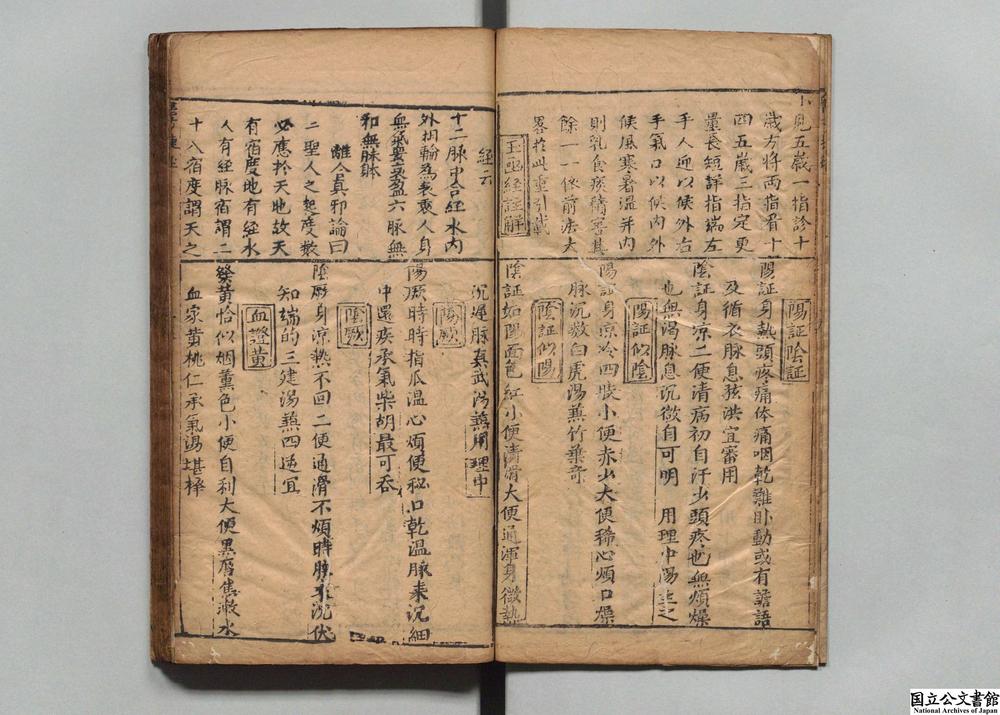 小児五歳一指診十
歳方将兩指看十
四五歳三指定更
量長短詳指端左
手人迎以候外右
手氣口以候内外
候風寒暑温并内
則乳食痰積審其
餘一一依前法大
畧於此重引載
玉函經註解
陽証陰証
陽証身熱頭疼痛体痛咽乾難卧動或有譫語
及循衣脉息弦洪宜審用
陰証身凉二便清病初自汗少頭疼也無煩燥
也無渴脉息沉微自可明 用理中湯主之
陽証似陰
陽証身凉冷四肢小便赤少大便稀心煩口燥
脉沉数白虎湯蒸竹葉奇
陰証似陽
陰証如陽面色紅小便清滑大便通渾身微熱
經云
十二脉中合經水内
外相輸為表裏人身
氣要衰盈六脉無
和無脉体
離合真邪論曰
二聖人之起度数
必應於天地故天
有宿度地有經水
人有經脉宿謂二
十八宿度謂天之
沉遲脉真武湯蒸用理中
陽厥
陽厥時時指爪温心煩便秘口乾温脉来沉細
中還疾承氣柴胡最可吞
陰厥
陰厥身凉熱不回二便通滑不煩時脉来沉伏
知端的三建湯蒸四逆宜
血證黄
發黄恰似烟薫色小便自利大便黒唇焦漱水
血家黄桃仁承氣湯堪擇
国立公文書館
National Archives of Japan